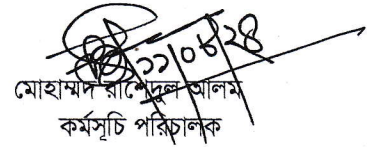 ১১/০৮/২৪
মোহাম্মদ রাশেদুল আলম
কর্মসূচি পরিচালক